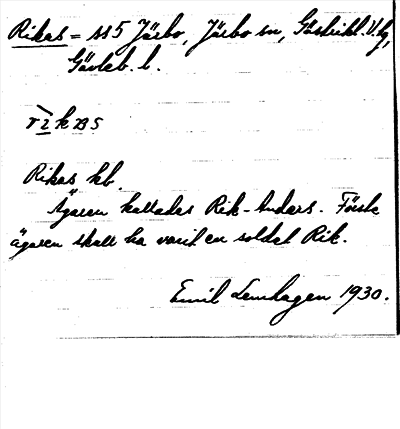 Rikas = ss 5 Järbo, Järbo sn, Gästrikl. V. tg,
Gävleb. l.
rìkas
Rikas kb.
Ägaren kallades Rik-Anders. Förste
ägaren skall ha varit en soldat Rik.
Emil Lemhagen 1930.